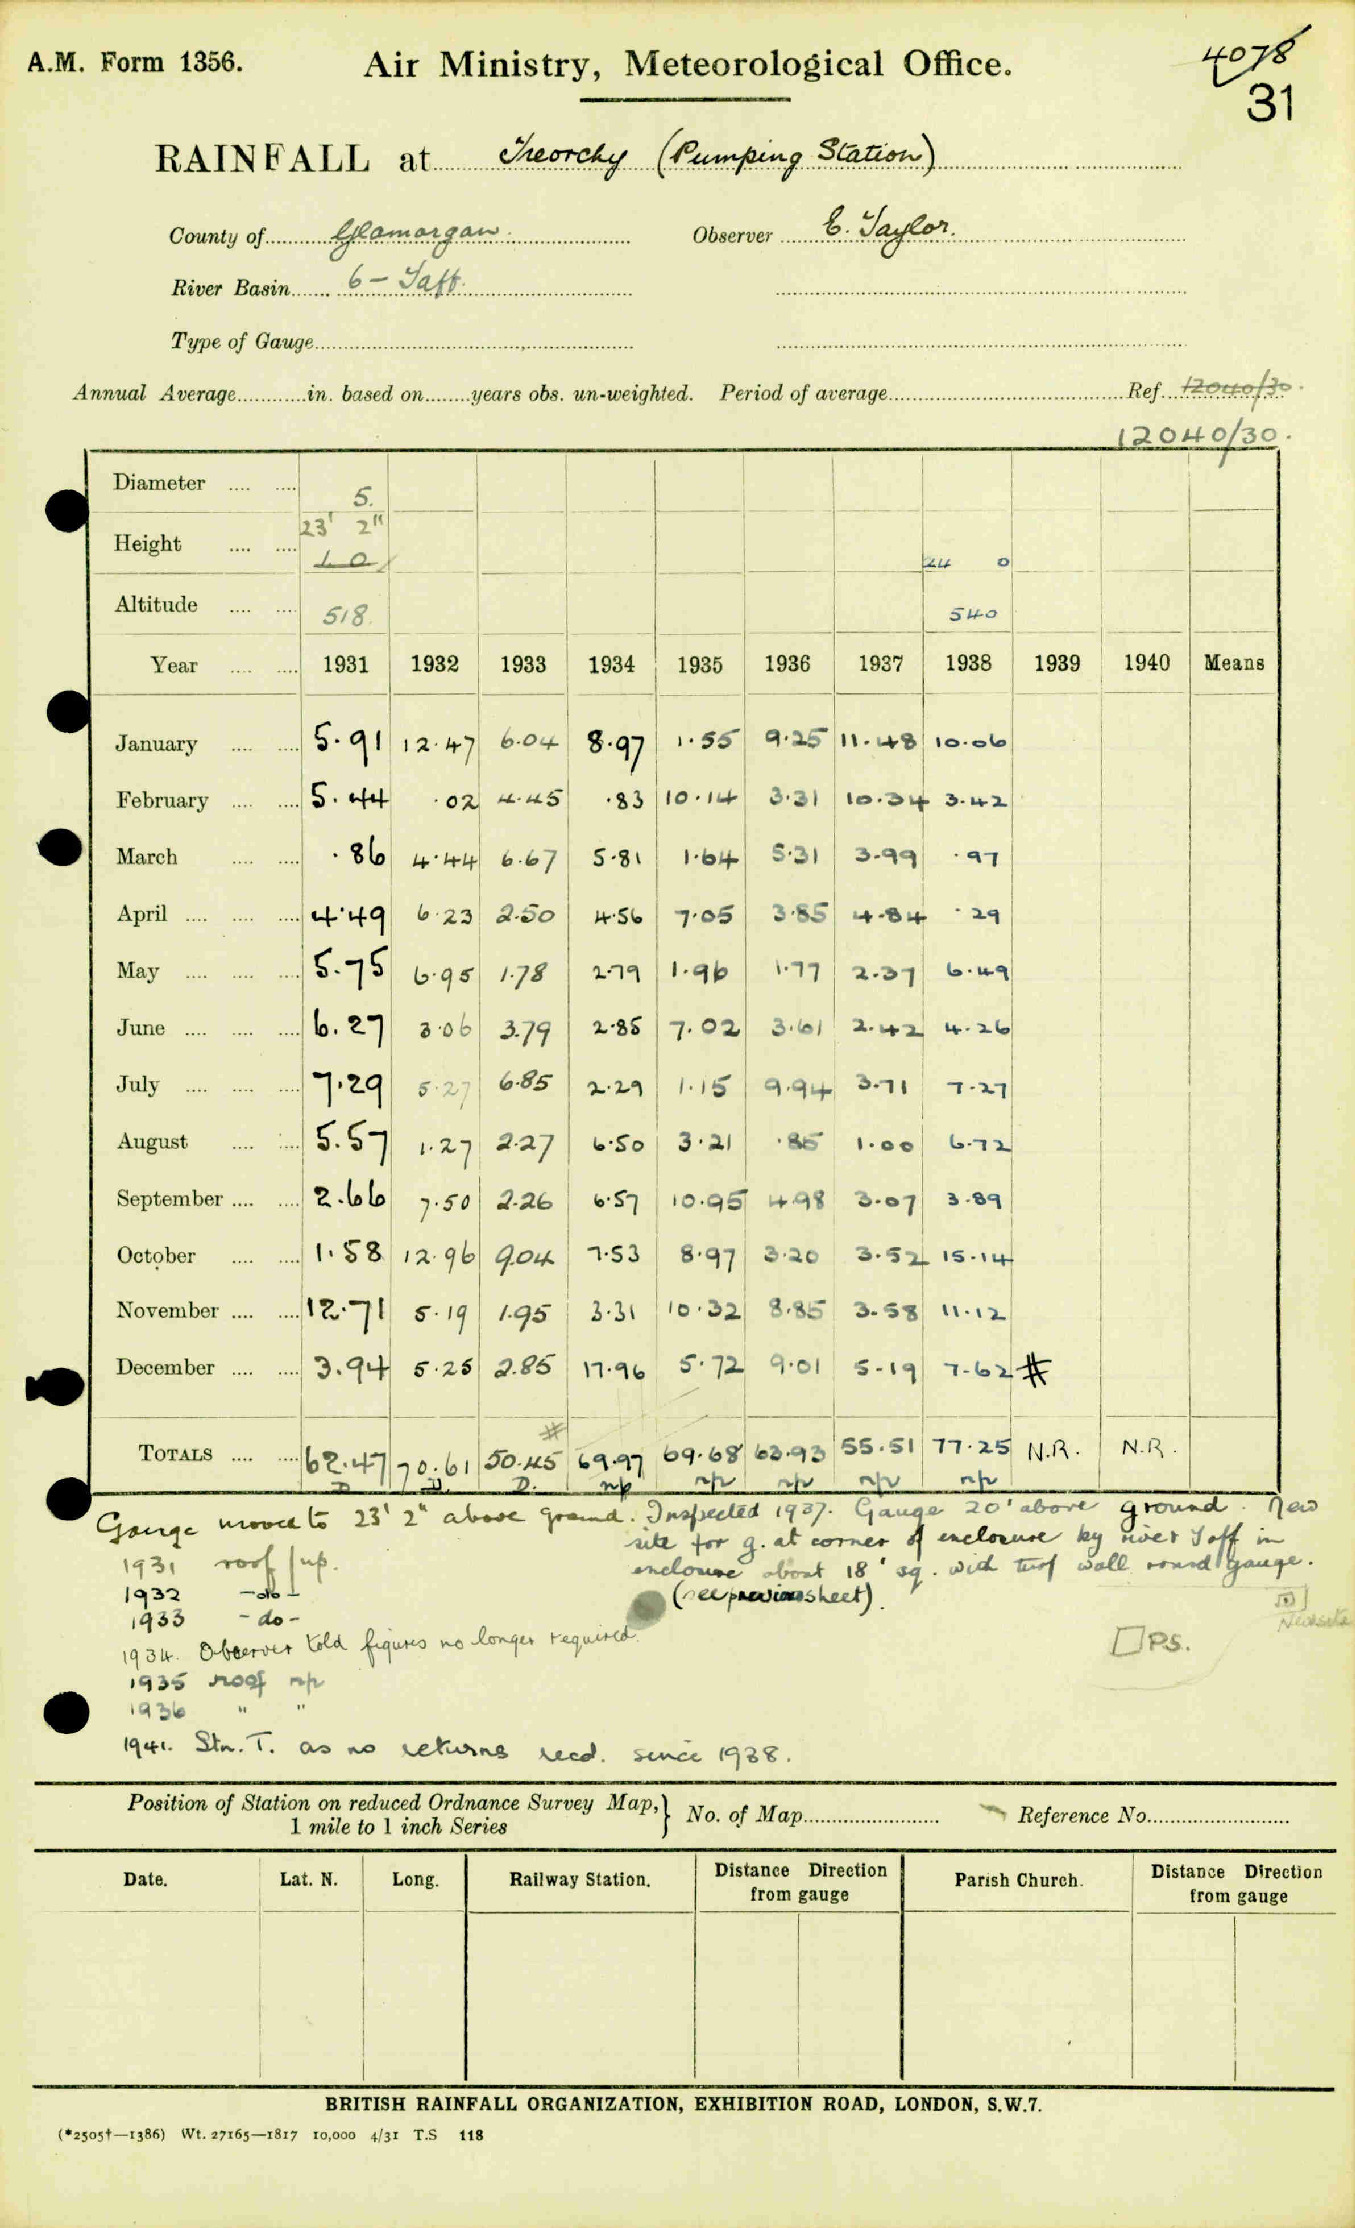 A.M. Form 1356.
Air Ministry, Meteorological Office.
4078
31
RAINFALL at Treorchy (Pumping Station)
County of Glamorgan. Observer E. Taylor.
River Basin 6 - Taff.
Type of Gauge
Annual Average in. based on years obs. un-weighted. Period of average Ref. 12040/30.
12040/30.
Diameter 5.
Height 23' 2"
1 0 24 0
Altitude 518. 540
Year 1931 1932 1933 1934 1935 1936 1937 1938 1939 1940 Means
January 5.91 12.47 6.04 8.97 1.55 9.25 11.48 10.06
February 5.44 .02 4.45 .83 10.14 3.31 10.34 3.42
March .86 4.44 6.67 5.81 1.64 5.31 3.99 .97
April 4.49 6.23 2.50 4.56 7.05 3.85 4.84 .29
May 5.75 6.95 1.78 2.79 1.96 1.77 2.37 6.49
June 6.27 3.06 3.79 2.85 7.02 3.61 2.42 4.26
July 7.29 5.27 6.85 2.29 1.15 9.94 3.71 7.27
August 5.57 1.27 2.27 6.50 3.21 .85 1.00 6.72
September 2.66 7.50 2.26 6.57 10.95 4.98 3.07 3.89
October 1.58 12.96 9.04 7.53 8.97 3.20 3.52 15.14
November 12.71 5.19 1.95 3.31 10.32 8.85 3.58 11.12
December 3.94 5.25 2.85 17.96 5.72 9.01 5.19 7.62 #
#
TOTALS 62.47 70.61 50.45 69.97 69.68 63.93 55.51 77.25 N.R. N.R.
D D. D. np np np np np
Gauge moved to 23' 2" above ground. Inspected 1937. Gauge 20' above ground. New
site for g. at corner of enclosure by river Taff in
1931 roof /up.
enclosure about 18' sq. with turf wall round gauge.
1932 -do-
(see previous sheet).
1933 -do-
Newsite
1934. Observer told figures no longer required.
P.S.
1935 roof np
1936 " "
1941. Stn. T. as no returns recd. since 1938.
Position of Station on reduced Ordnance Survey Map,} No. of Map Reference No.
1 mile to 1 inch Series
Date. Lat. N. Long. Railway Station. Distance Direction from gauge Parish Church. Distance Direction from gauge
BRITISH RAINFALL ORGANIZATION, EXHIBITION ROAD, LONDON, S.W.7.
(*2505†—1386) Wt. 27165—1817 10,000 4/31 T.S 118